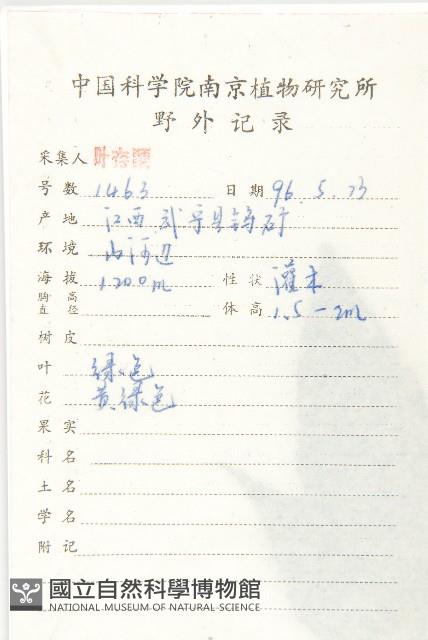 中国科学院南京植物研究所
野外记录
采集人 叶存粟
号数 1463 日期 96.5.23
产地 江西武宁县钨矿
环境 山河边
海拔 1200m 性状 灌木
胸高直径 体高 1.5-2m
树皮
叶 绿色
花 黄绿色
果实
科名
土名
学名
附记
國立自然科學博物館
NATIONAL MUSEUM OF NATURAL SCIENCE